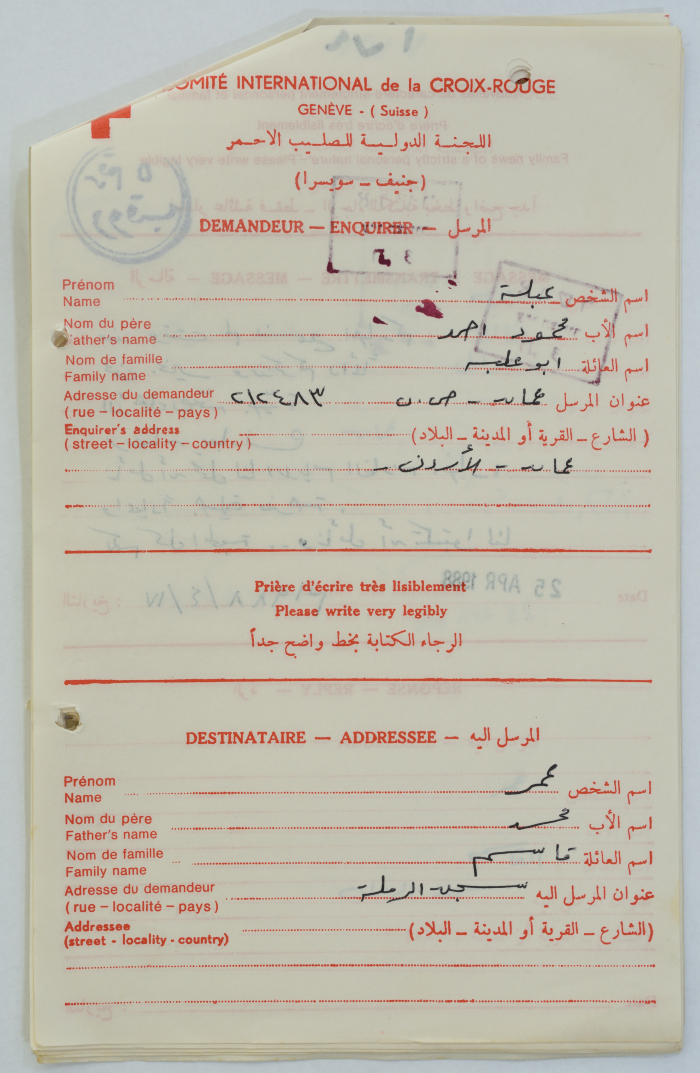 COMITÉ INTERNATIONAL de la CROIX-ROUGE
GENÈVE - ( Suisse )
اللجنة الدولية للصليب الاحمر
(جنيف - سويسرا)
DEMANDEUR — ENQUIRER — المرسل
Prénom
Name
اسم الشخص عبلة
Nom du père
Father's name
اسم الأب محمود احمد
Nom de famille
Family name
اسم العائلة ابو علبه
Adresse du demandeur
( rue – localité – pays )
عنوان المرسل عمان - ص.ب ٢١٢٤٨٣
Enquirer's address
( street – locality – country )
( الشارع - القرية أو المدينة - البلاد )
عمان - الأردن -
Prière d'écrire très lisiblement
Please write very legibly
الرجاء الكتابة بخط واضح جداً
25 APR 1988
DESTINATAIRE — ADDRESSEE — المرسل اليه
Prénom
Name
اسم الشخص عمر
Nom du père
Father's name
اسم الأب محمد
Nom de famille
Family name
اسم العائلة قاسم
Adresse du demandeur
( rue – localité – pays )
عنوان المرسل اليه سجن الرملة
Addressee
(street - locality - country)
(الشارع - القرية أو المدينة - البلاد)